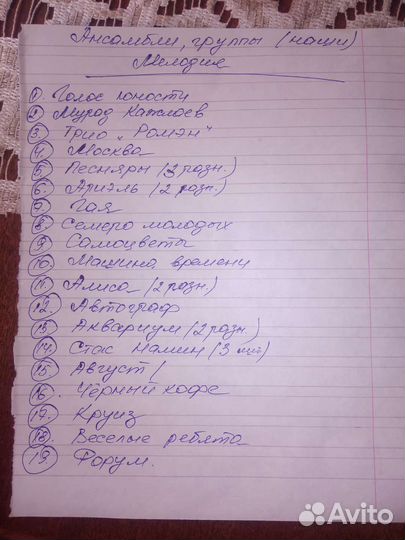 Ансамбли, группы (наши)
Мелодия
1. Голос юности
2 Мурад Кажлаев
3. Трио „Ромэн"
4. Москва
5. Песняры (3 разн.)
6. Ариэль (2 разн.)
7 Гая
8. Семеро молодых
9. Самоцветы
10. Машина времени
11. Алиса (2 разн.)
12. Автограф
13. Аквариум (2 разн.)
14. Стас Намин (3 шт)
15. Август /
16. Чёрный кофе
17. Круиз
18. Веселые ребята
19. Форум.
Avito